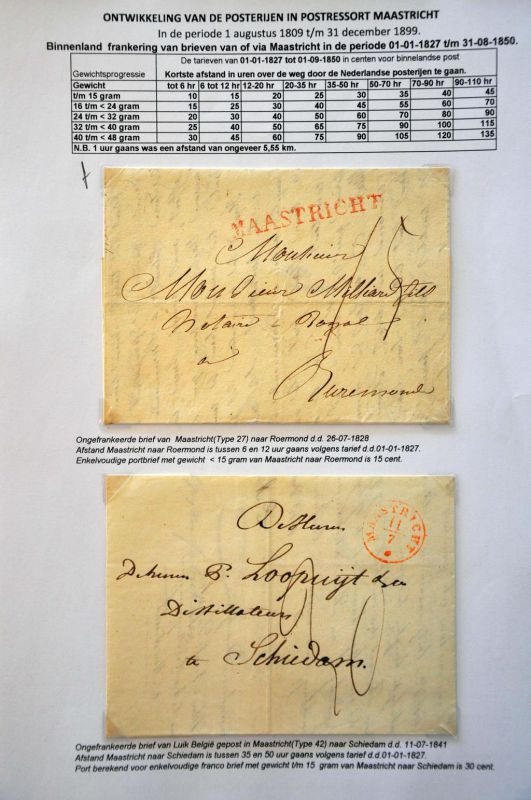 ONTWIKKELING VAN DE POSTERIJEN IN POSTRESSORT MAASTRICHT
In de periode 1 augustus 1809 t/m 31 december 1899.
Binnenland frankering van brieven van of via Maastricht in de periode 01-01-1827 t/m 31-08-1850.
De tarieven van 01-01-1827 tot 01-09-1850 in centen voor binnelandse post
Gewichtsprogressie Kortste afstand in uren over de weg door de Nederlandse posterijen te gaan.
Gewicht tot 6 hr 6 tot 12 hr 12-20 hr 20-35 hr 35-50 hr 50-70 hr 70-90 hr 90-110 hr
t/m 15 gram 10 15 20 25 30 35 40 45
16 t/m < 24 gram 15 25 30 40 45 55 60 70
24 t/m < 32 gram 20 30 40 50 60 70 80 90
32 t/m < 40 gram 25 40 50 65 75 90 100 115
40 t/m < 48 gram 30 45 60 75 90 105 120 135
N.B. 1 uur gaans was een afstand van ongeveer 5,55 km.
MAASTRICHT
Monsieur
Monsieur Milliard fils
Notaire Royal
a
Ruremonde
Ongefrankeerde brief van Maastricht(Type 27) naar Roermond d.d. 26-07-1828
Afstand Maastricht Roermond is tussen 6 en 12 uur gaans volgens tarief d.d.01-01-1827.
Enkelvoudige portbrief met gewicht < 15 gram van Maastricht naar Roermond is 15 cent.
MAASTRICHT
11
7
De Heeren
P. Loopuijt
Distillateurs
te Schiedam.
Ongefrankeerde brief van Luik België gepost in Maastricht(Type 42) naar Schiedam d.d. 11-07-1841
Afstand Maastricht naar Schiedam is tussen 35 en 50 uur gaans volgens tarief d.d.01-01-1827.
Port berekend voor enkelvoudige franco brief met gewicht t/m 15 gram van Maastricht naar Schiedam is 30 cent.